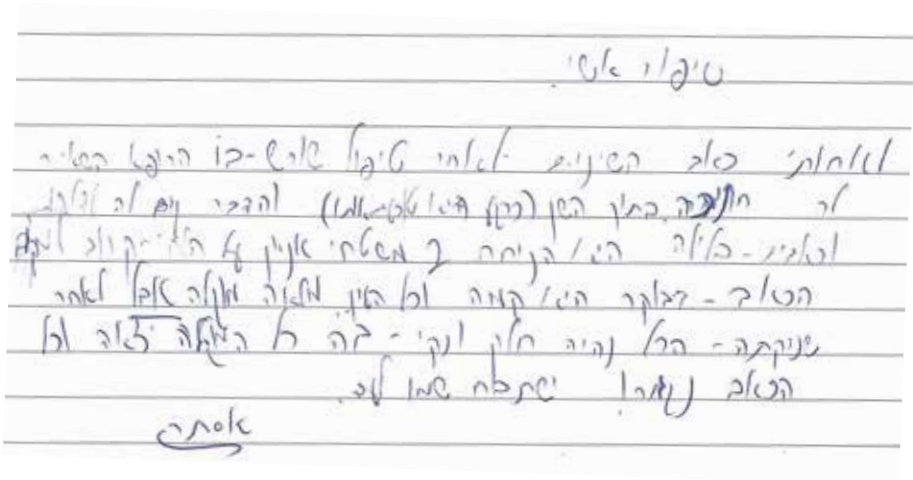 סיפור אישי.
לאחותי כאב השיניים לאחר טיפול שורש - בו הרופא השאיר
לה חתיכה בתוך השן (כרגע היא) והדבר גרם לה דלקת
וכאבים - בלילה היא הניחה משטחי על הלחי - קרוב למקום
הכאב - בבוקר היא קמה וכל העין מלאה מוגלה אבל לאחר
שניקתה - הכל נהיה חלק ונקי - בה כל המוגלה יצאה וכל
הכאב נגמר! ישתבח שמו לעד.
אסתר